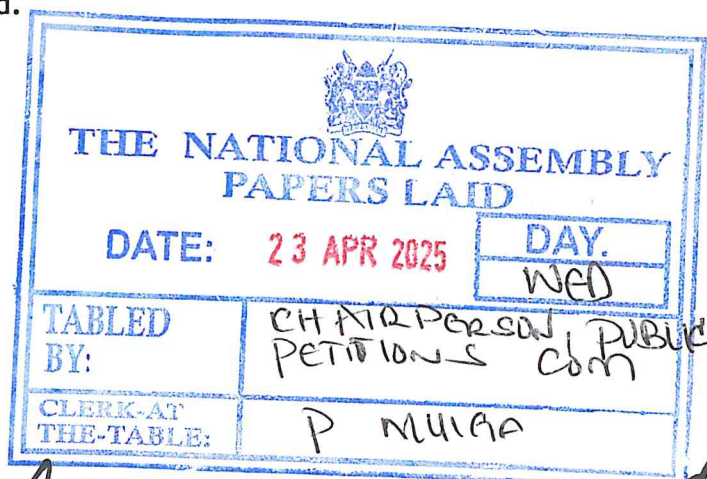 d.
THE NATIONAL ASSEMBLY
PAPERS LAID
DATE: 23 APR 2025
DAY.
WED
TABLED BY:
CHAIRPERSON, PUBLIC
PETITIONS COM
CLERK-AT
THE-TABLE:
P MUIRA